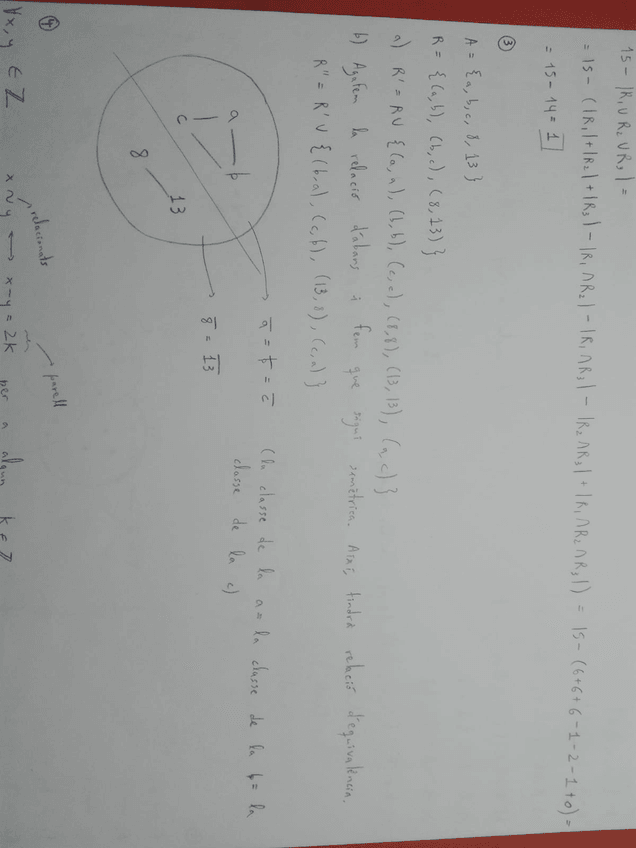 15 - |R₁ ∪ R₂ ∪ R₃| =
= 15 - (|R₁|+|R₂|+|R₃| - |R₁ ∩ R₂| - |R₁ ∩ R₃| - |R₂ ∩ R₃| + |R₁ ∩ R₂ ∩ R₃|) = 15 - (6+6+6-1-2-1+0) =
= 15 - 14 = 1
③
A = {a, b, c, 8, 13}
R = {(a,b), (b,c), (8,13)}
a) R' = R ∪ {(a,a), (b,b), (c,c), (8,8), (13,13), (a,c)}
b) Agafem la relació d'abans i fem que sigui simètrica. Així, tindrà relació d'equivalència.
R'' = R' ∪ {(b,a), (c,b), (13,8), (c,a)}
a b c
8 13
a̅ = b̅ = c̅ (la classe de la a = la classe de la b = la
classe de la c)
8̅ = 1̅3̅
④
relacionats
parell
∀x,y ∈ ℤ x ~ y ⟷ x-y = 2k per a algun k ∈ ℤ